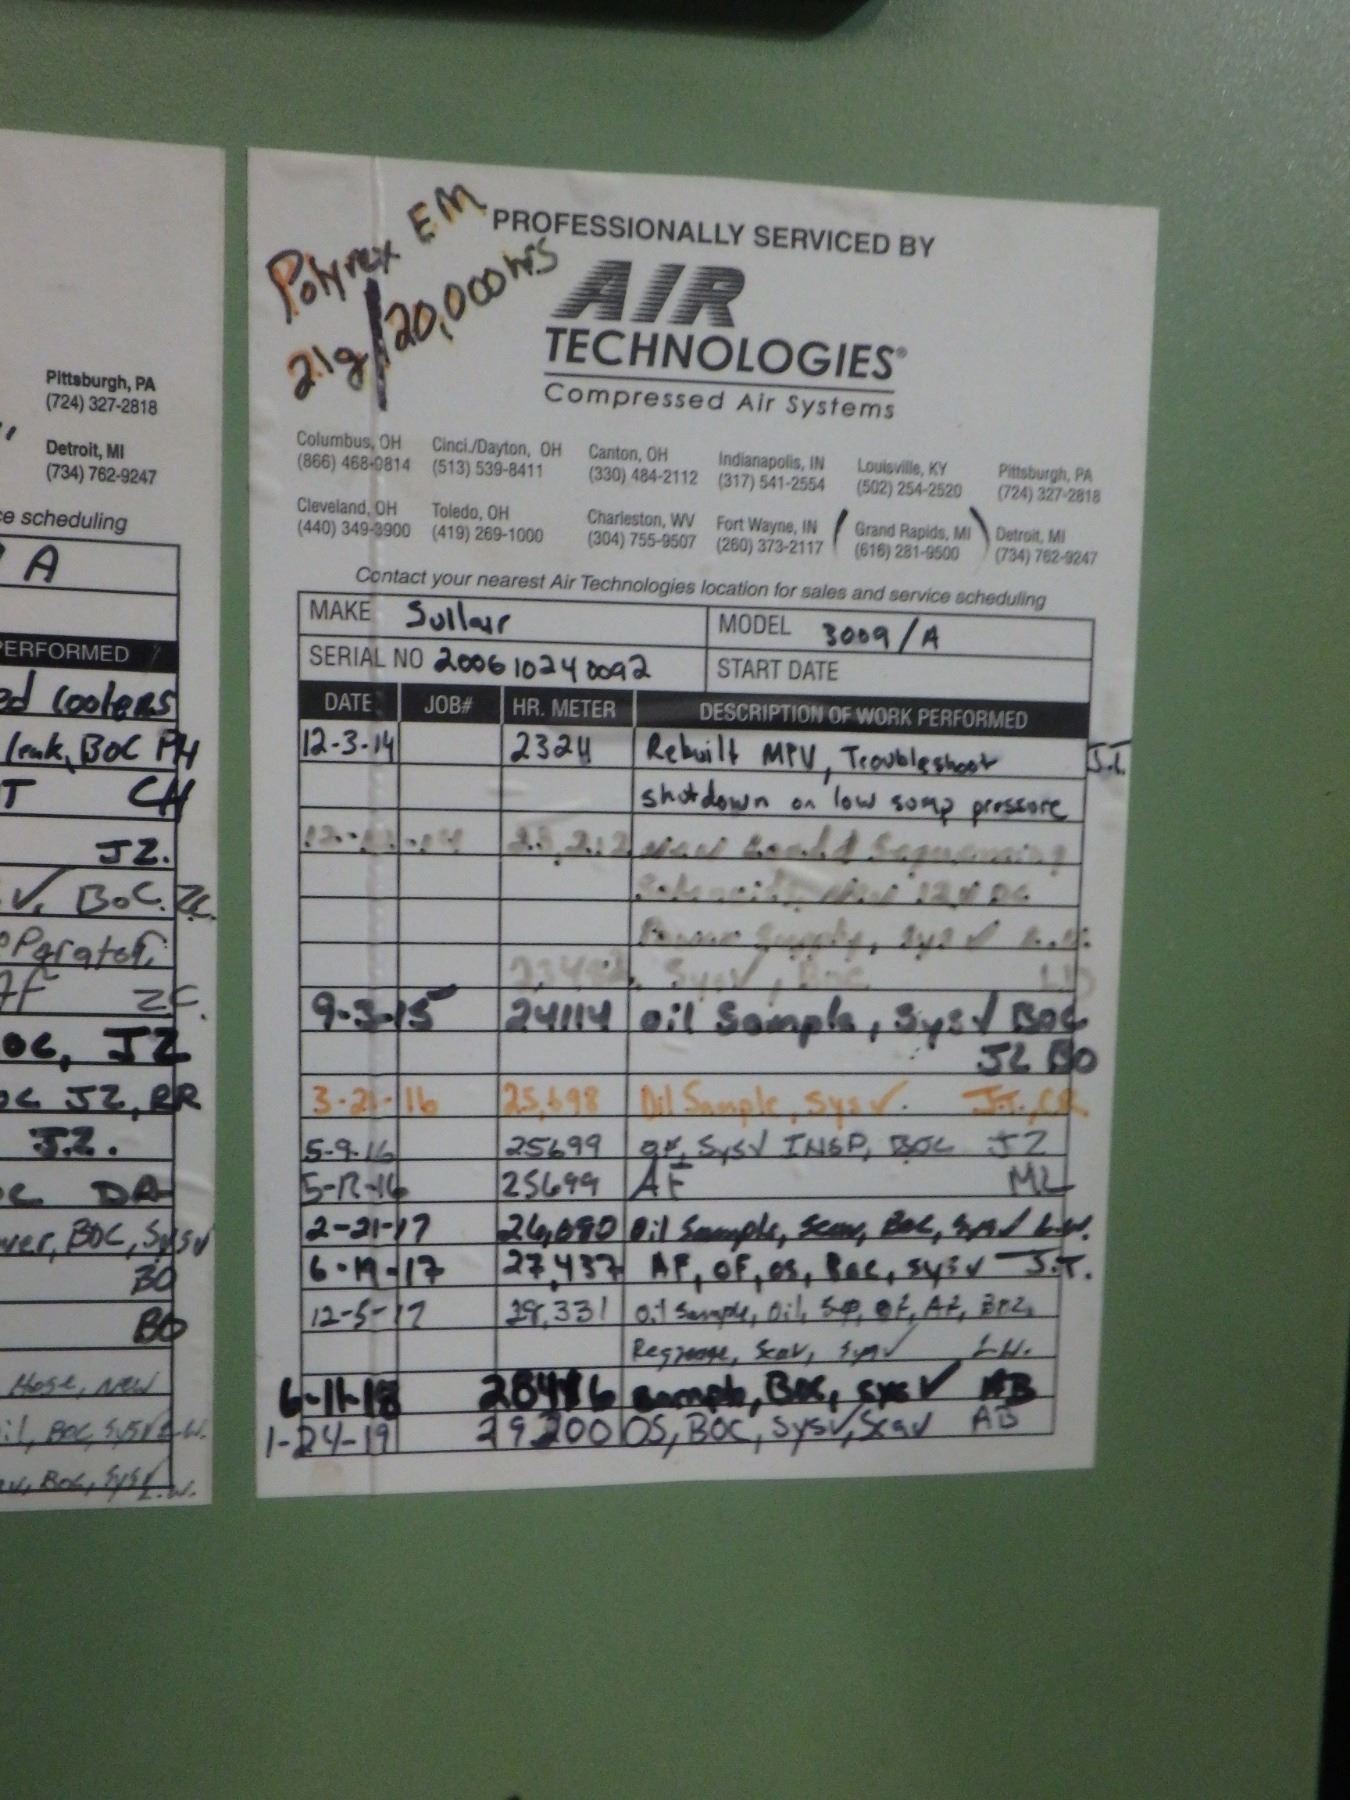 Pittsburgh, PA
(724) 327-2818
Detroit, MI
(734) 762-9247
ce scheduling
A
ERFORMED
ed coolers
leak, BOC PH
T CH
JZ.
√, BOC. ZC.
AF ZC.
OC, JZ
OC JZ, RR
JZ.
DA
BOC, Sys√
BO
BO
Hose, new
BOC, Sys√ L.W.
BOC, Sys√ L.W.
Polyrex EM
21g/20,000hrs
PROFESSIONALLY SERVICED BY
AIR
TECHNOLOGIES®
Compressed Air Systems
Columbus, OH Cinci./Dayton, OH Canton, OH Indianapolis, IN Louisville, KY Pittsburgh, PA
(866) 468-9814 (513) 539-8411 (330) 484-2112 (317) 541-2554 (502) 254-2520 (724) 327-2818
Cleveland, OH Toledo, OH Charleston, WV Fort Wayne, IN Grand Rapids, MI Detroit, MI
(440) 349-3900 (419) 269-1000 (304) 755-9507 (260) 373-2117 (616) 281-9500 (734) 762-9247
Contact your nearest Air Technologies location for sales and service scheduling
MAKE Sullair MODEL 3009/A
SERIAL NO 200610240092 START DATE
DATE JOB# HR. METER DESCRIPTION OF WORK PERFORMED
12-3-14 2324 Rebuilt MPV, Troubleshoot J.T.
shutdown on low sump pressure
Sequencing
Power Supply, Sys √
Sys√, BOC
9-3-15 24114 oil Sample, Sys√ BOC
JZ BO
3-21-16 25,698 Oil Sample, Sys√. J.T., CR
5-9-16 25699 OF, Sys√ INSP, BOC JZ
5-17-16 25699 AF ML
2-21-17 26,690 Oil Sample, Scav, BOC, Sys√ L.W.
6-19-17 27,437 AF, OF, OS, BOC, Sys√ J.T.
12-5-17 28,331 Oil Sample, Oil, Sep, OF, AF,
Regrease, Scav, Sys√ L.W.
6-11-18 sample, BOC, sys√ AB
1-24-19 29200 OS, BOC, Sys√, Scav AB